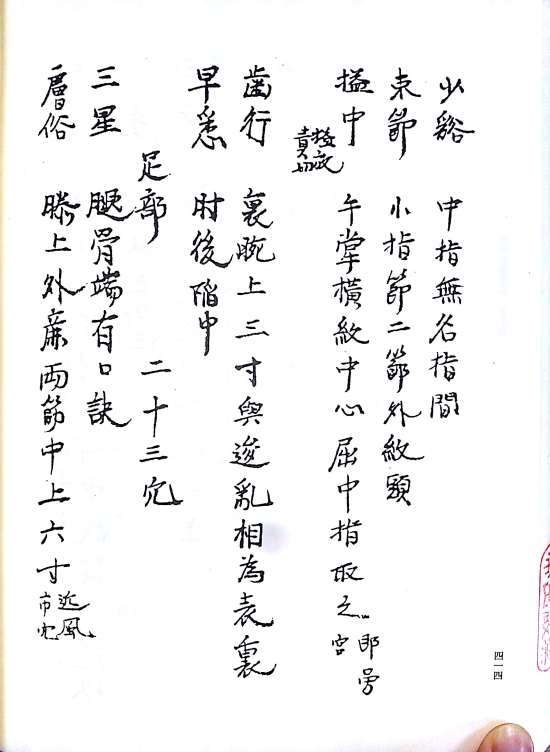 少谿 中指無名指間
束節 小指節二節外紋頭
搤中 午掌橫紋中心屈中指取之 即勞宮
責切
齒行 裏腕上三寸與逡亂相為表裏
早悉 肘後陷中
足部 二十三穴
三星 腿骨端有口訣
層俗 膝上外廉兩筋中上六寸 近風市穴
四一四